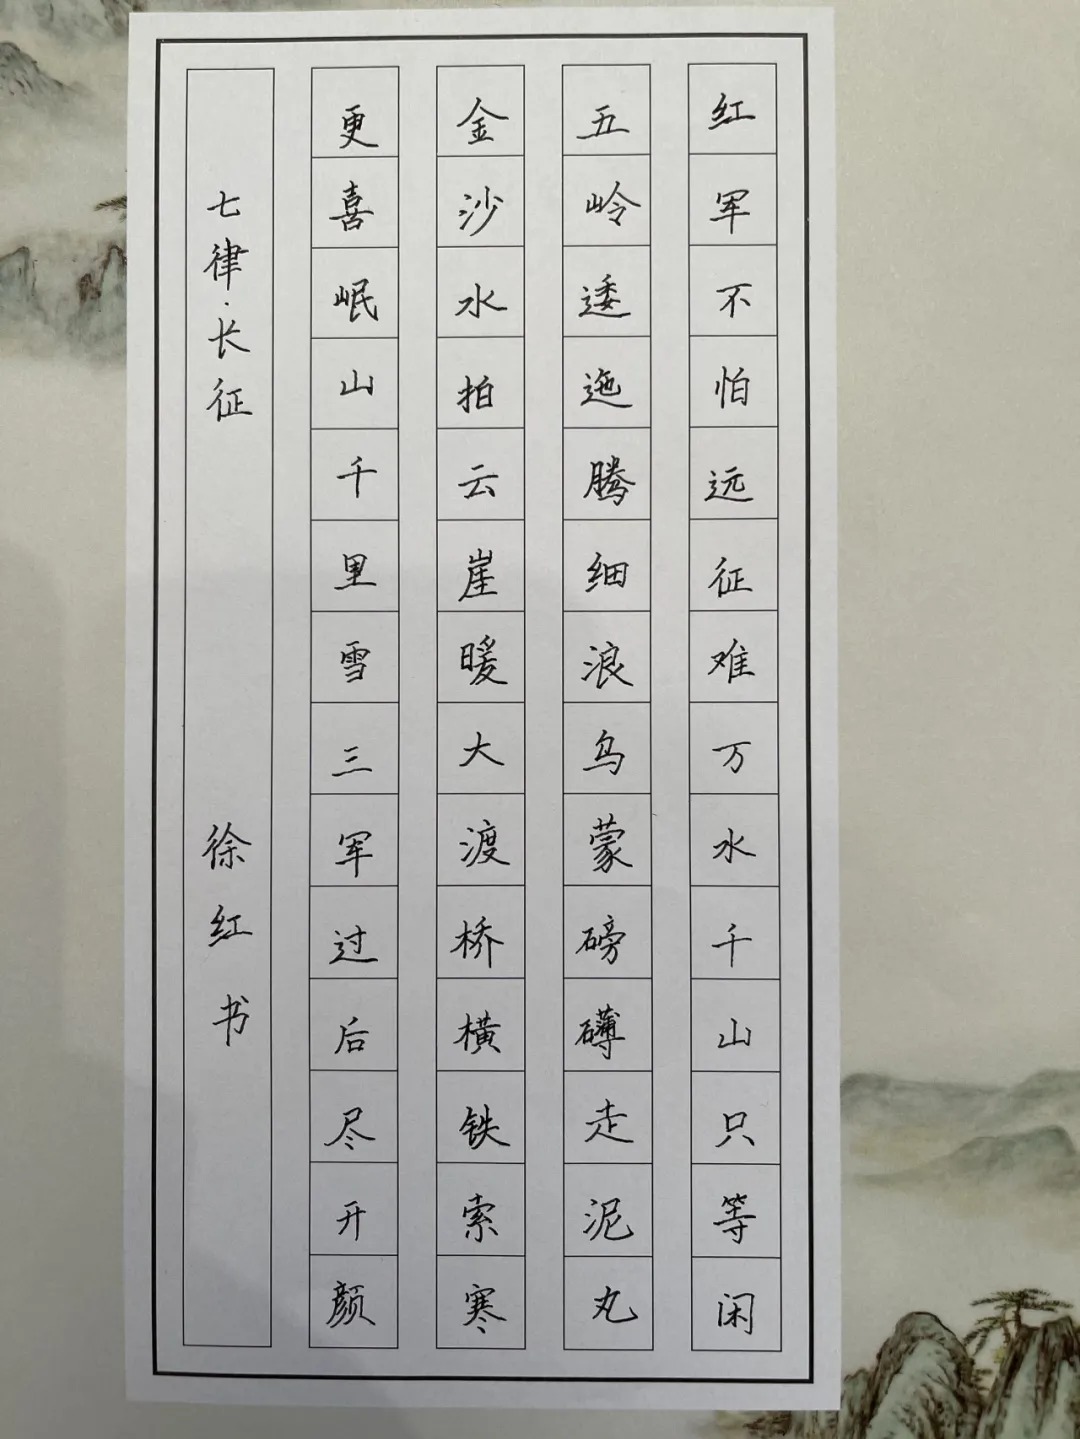 红军不怕远征难万水千山只等闲
五岭逶迤腾细浪乌蒙磅礴走泥丸
金沙水拍云崖暖大渡桥横铁索寒
更喜岷山千里雪三军过后尽开颜
七律·长征 徐红书